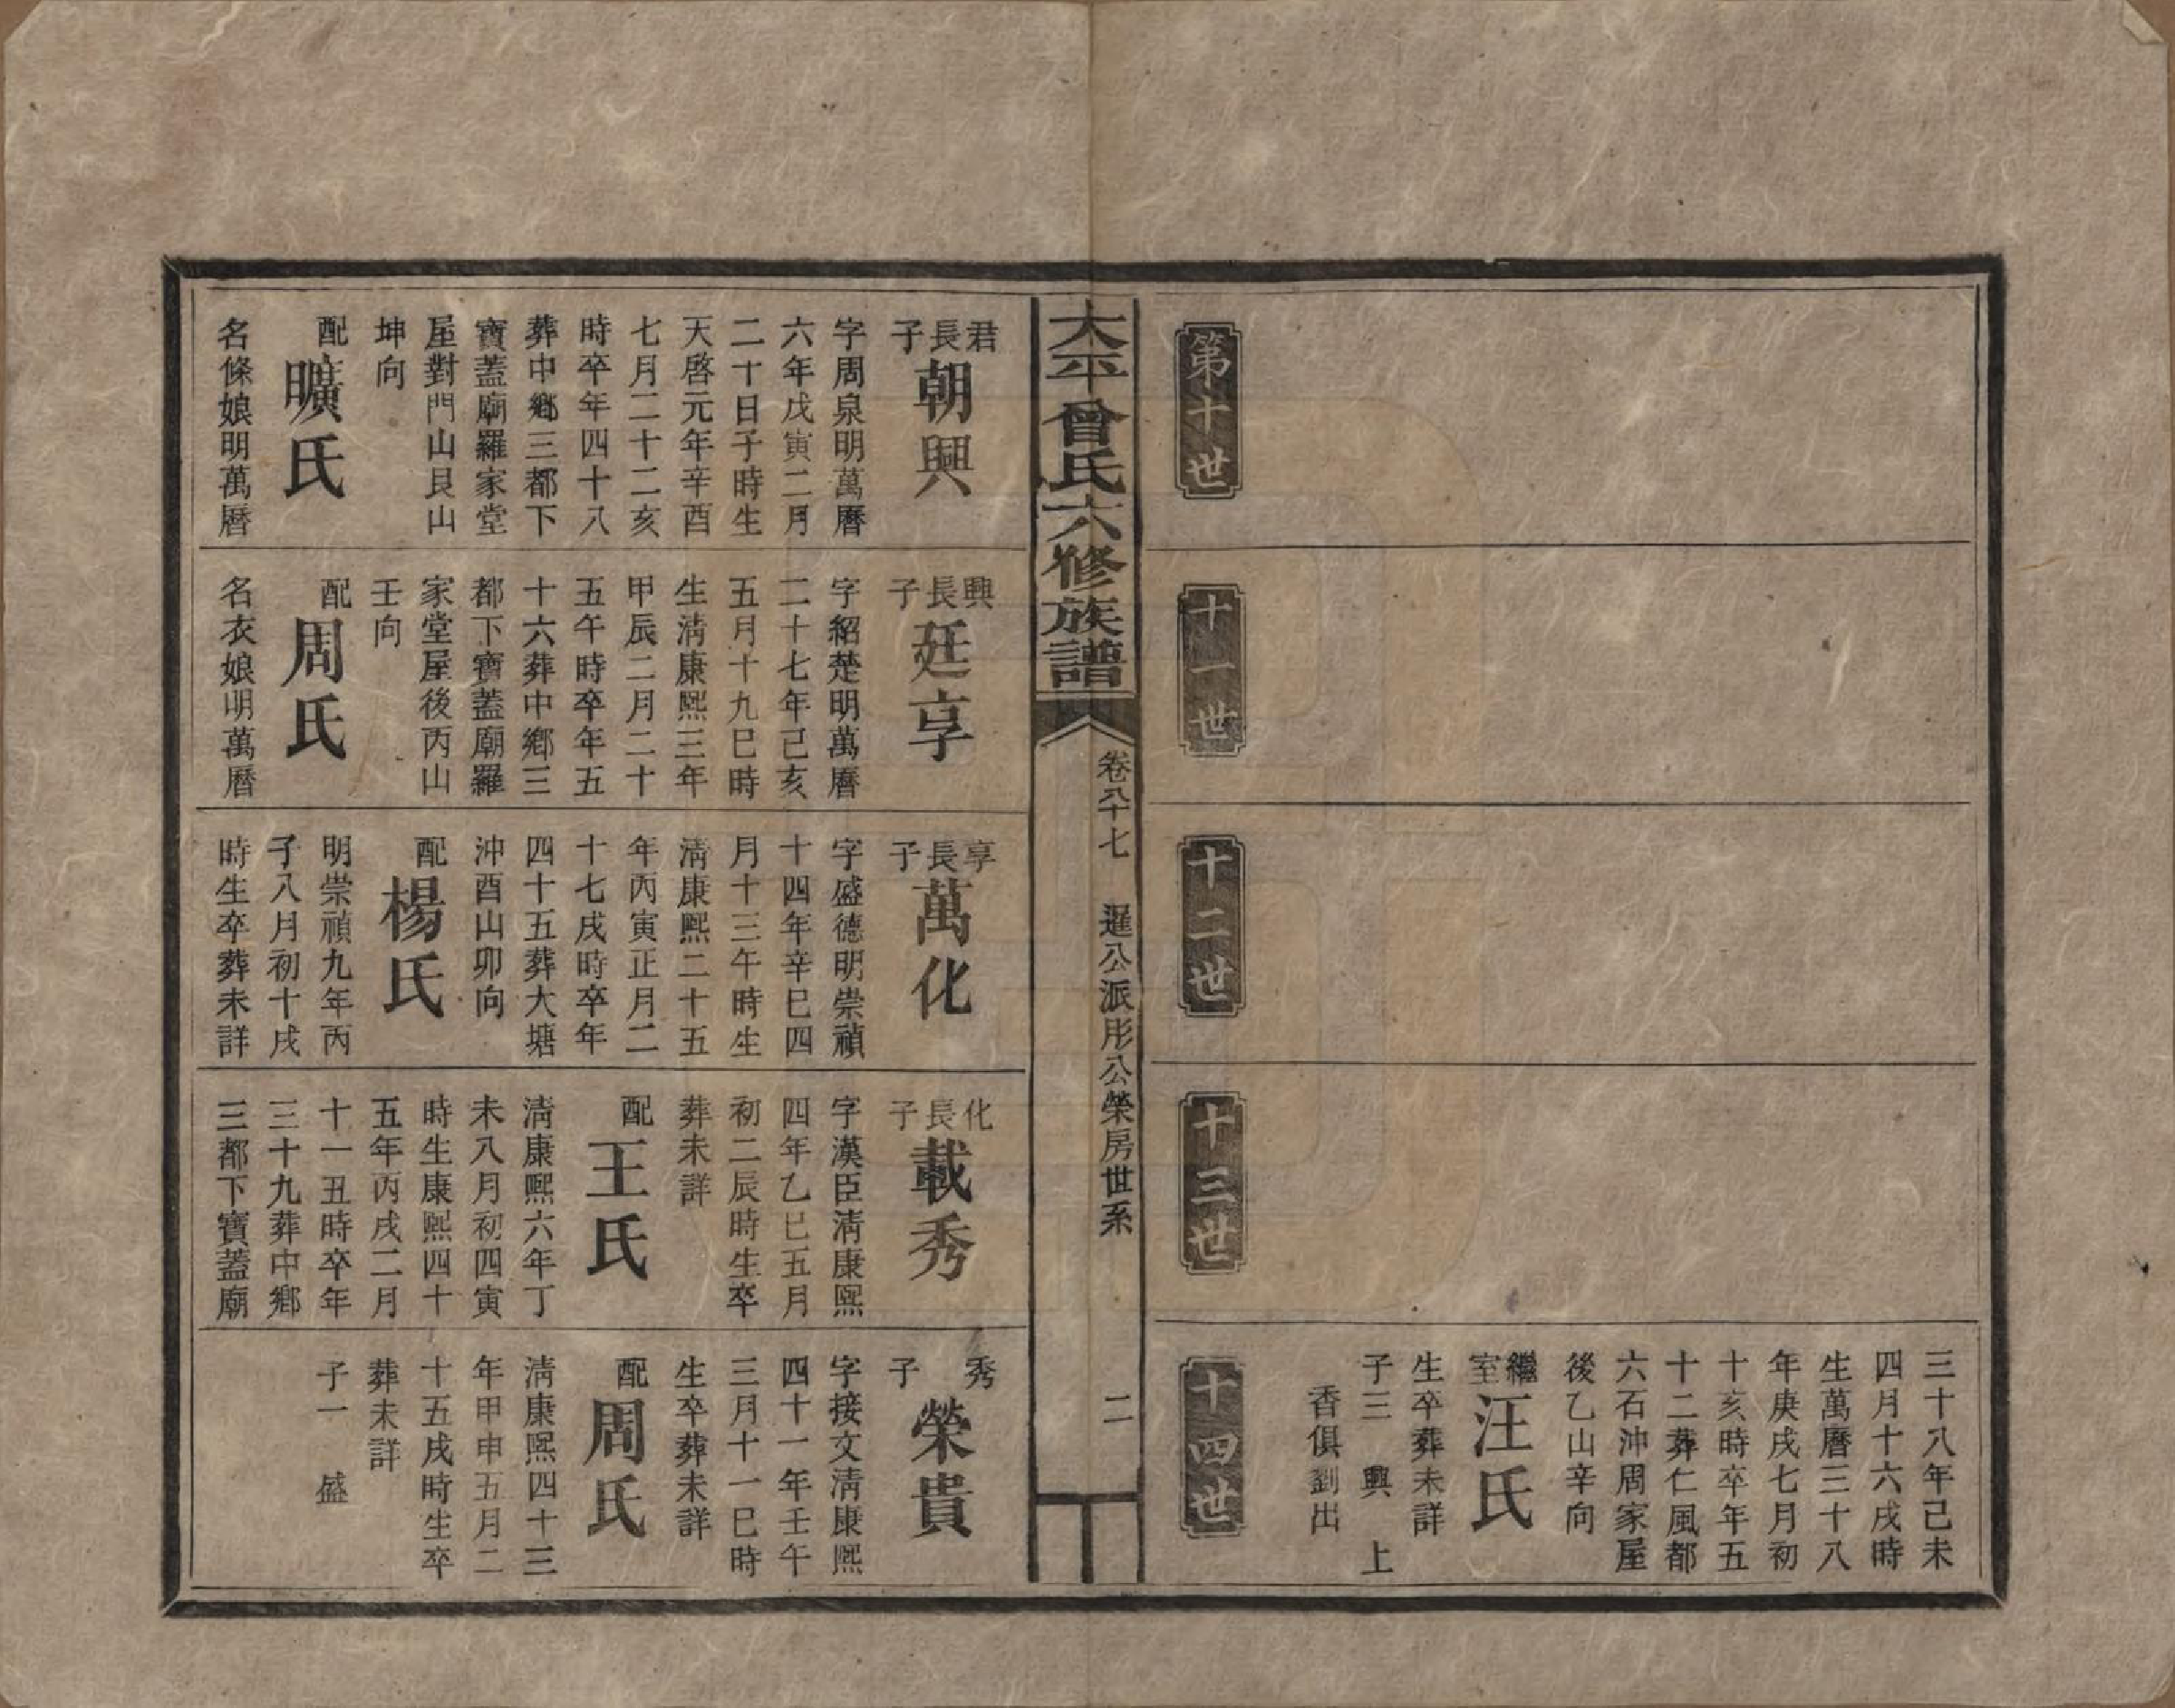 第十世
十一世
十二世
十三世
三十八年己未
四月十六戌時
生萬曆三十八
年庚戌七月初
十亥時卒年五
十二葬仁風都
六石沖周家屋
後乙山辛向
繼室汪氏
生卒葬未詳
子三 興 上
香俱劉出
十四世
大平曾氏六修族譜
卷八十七 暹公派彤公榮房世系
二
君長子朝興
字周泉明萬曆
六年戊寅二月
二十日子時生
天啓元年辛酉
七月二十二亥
時卒年四十八
葬中鄉三都下
寶蓋廟羅家堂
屋對門山艮山
坤向
配曠氏
名條娘明萬曆
興長子廷享
字紹楚明萬曆
二十七年己亥
五月十九巳時
生清康熙三年
甲辰二月二十
五午時卒年五
十六葬中鄉三
都下寶蓋廟羅
家堂屋後丙山
壬向
配周氏
名衣娘明萬曆
享長子萬化
字盛德明崇禎
十四年辛巳四
月十三午時生
清康熙二十五
年丙寅正月二
十七戌時卒年
四十五葬大塘
沖酉山卯向
配楊氏
明崇禎九年丙
子八月初十戌
時生卒葬未詳
化長子載秀
字漢臣清康熙
四年乙巳五月
初二辰時生卒
葬未詳
配王氏
清康熙六年丁
未八月初四寅
時生康熙四十
五年丙戌二月
十一丑時卒年
三十九葬中鄉
三都下寶蓋廟
秀子榮貴
字接文清康熙
四十一年壬午
三月十一巳時
生卒葬未詳
配周氏
清康熙四十三
年甲申五月二
十五戌時生卒
葬未詳
子一 盛